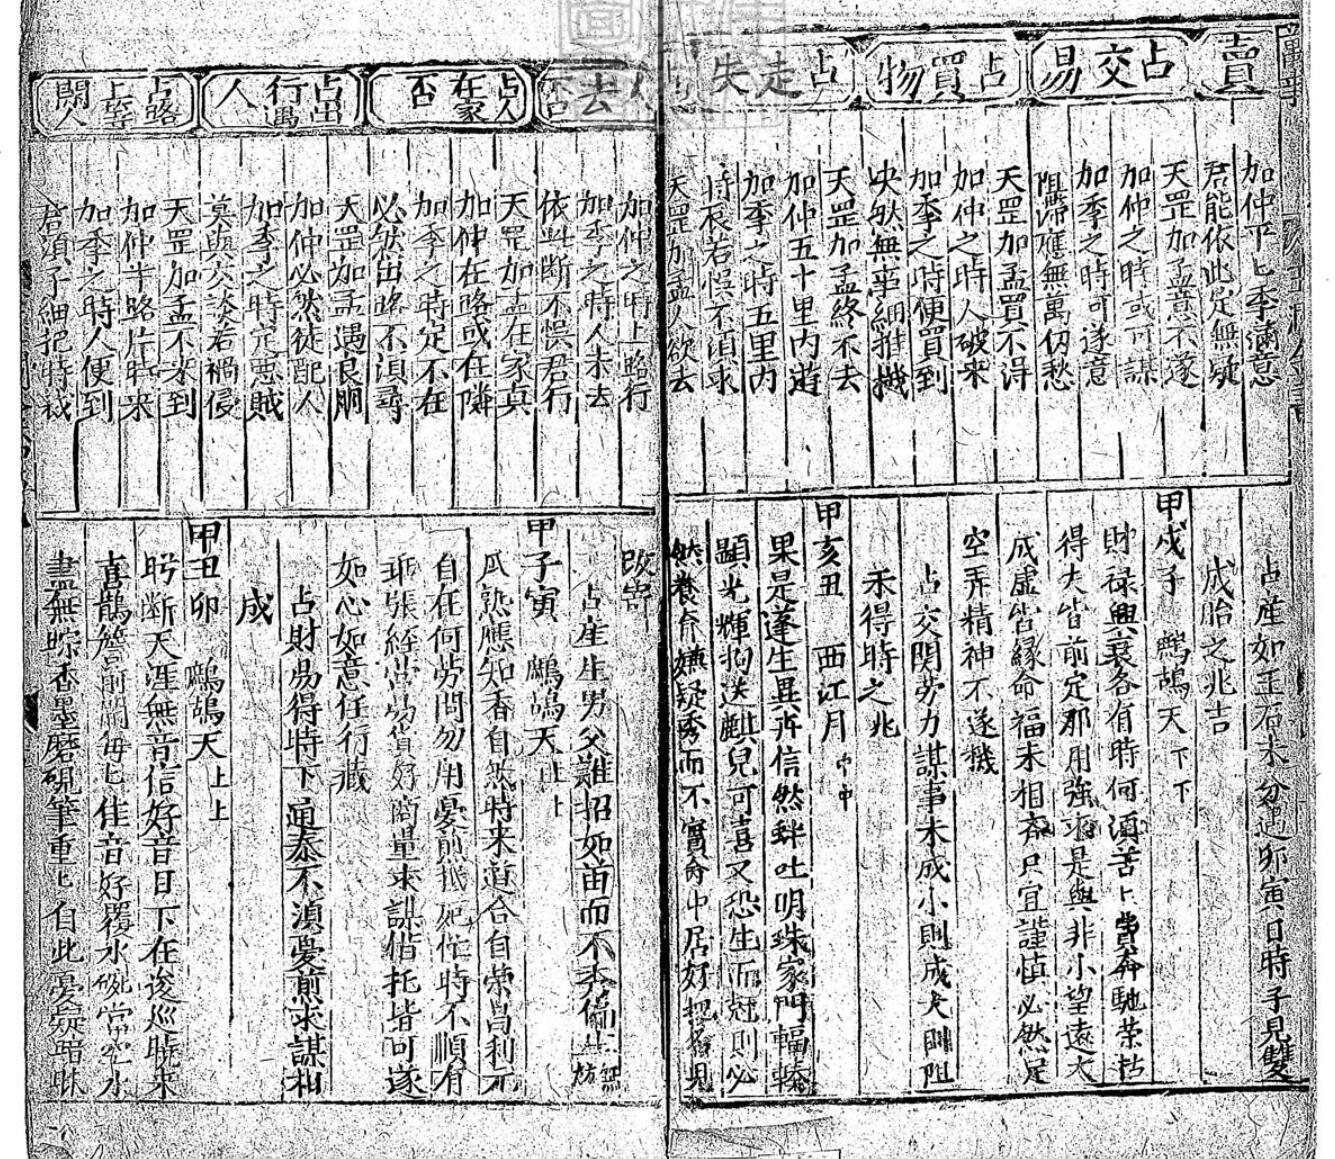 賣
占交易
占買物
占走失
加仲下七季滿意
君能依此定無疑
天罡加孟意不遂
加仲之時或可謀
加季之時可遂意
阻滯應無萬仞愁
天罡加孟買不得
加仲之時人破來
加季之時便買到
央然無事細推機
天罡加孟終不去
加仲五十里內遊
加季之時五里內
時衰若悞不須求
天罡加孟人欲去
占產如玉石未分遇卯寅日時子見雙
成胎之兆吉
甲戌子　鷓鴣天下下
財祿興衰各有時何須苦上費奔馳榮枯
得失皆前定那用強求是與非小望遠大
成虛皆緣命福未相齊只宜謹慎必然足
空弄精神不遂機
占交関勞力謀事未成小則成大則阻
禾得時之兆
甲亥丑　西江月中中
果是蓬生異卉信然蚌吐明珠家門輻輳
顯光輝抱送麒兒可喜又恐生而尅則必
然養育嫌疑秀而不實命中居好把名兒
去否
占人在家否
占出行遇人
占路上等閑人
加仲之時上路行
加季之時人未去
依此斷不悞君行
天罡加孟在家真
加仲在路或在隣
加季之時定不在
必然出路不須尋
天罡加孟遇良朋
加仲必然徒配人
加季之時定惡賊
莫與交談若禍侵
天罡加孟不來到
加仲半路片時來
加季之時人便到
君須子細把時裁
改寄
占生生男父難招如苗而不秀偏生無妨
甲子寅　鷓鴣天上上
瓜熟應知香自然時來道合自榮昌利元
自在何勞問勿用憂煎抵死忙時不順有
乖張経営買貨好商量求謀偕托皆可遂
如心如意任行藏
占財易得時下通泰不須憂煎求謀相
成
甲丑卯　鷓鴣天上上
盻斷天涯無音信好音目下在逡巡曉來
喜鵲簷前閙每七佳音好覆水硯當空水
盡無踪香墨磨硯筆重七自此憂疑暗